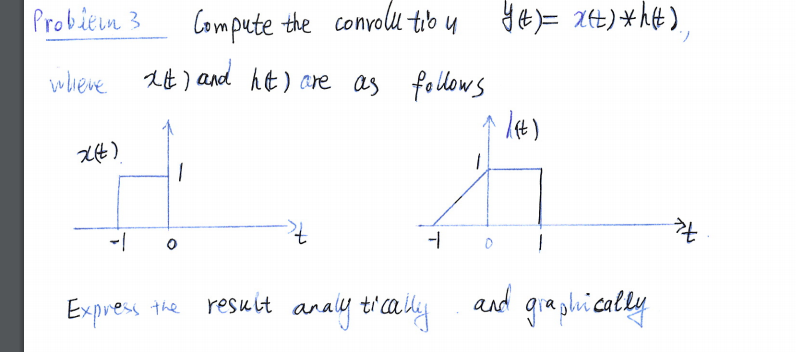 Problem 3 Compute the convolution y(t) = x(t) * h(t),
where x(t) and h(t) are as follows
x(t) 1 h(t) 1
-1 0 t -1 0 1 t
Express the result analytically and graphically